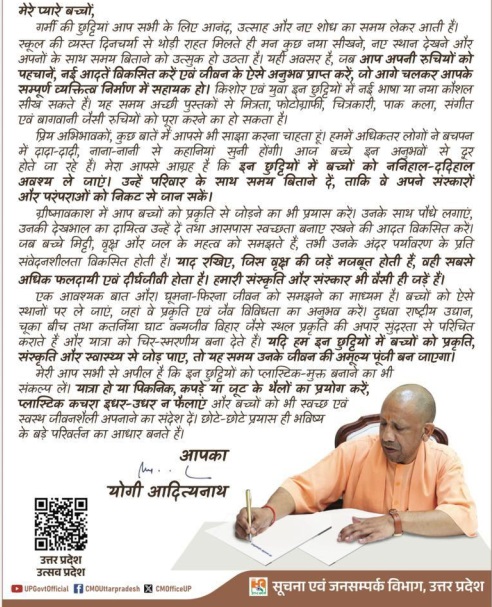 मेरे प्यारे बच्चों,
गर्मी की छुट्टियां आप सभी के लिए आनंद, उत्साह और नए शोध का समय लेकर आती हैं।
स्कूल की व्यस्त दिनचर्या से थोड़ी राहत मिलते ही मन कुछ नया सीखने, नए स्थान देखने और
अपनों के साथ समय बिताने को उत्सुक हो उठता है। यही अवसर है, जब आप अपनी रुचियों को
पहचानें, नई आदतें विकसित करें एवं जीवन के ऐसे अनुभव प्राप्त करें, जो आगे चलकर आपके
सम्पूर्ण व्यक्तित्व निर्माण में सहायक हो। किशोर एवं युवा इन छुट्टियों में नई भाषा या नया कौशल
सीख सकते हैं। यह समय अच्छी पुस्तकों से मित्रता, फोटोग्राफी, चित्रकारी, पाक कला, संगीत
एवं बागवानी जैसी रुचियों को पूरा करने का हो सकता है।
प्रिय अभिभावकों, कुछ बातें मैं आपसे भी साझा करना चाहता हूं। हममें अधिकतर लोगों ने बचपन
में दादा-दादी, नाना-नानी से कहानियां सुनी होंगी। आज बच्चे इन अनुभवों से दूर
होते जा रहे हैं। मेरा आपसे आग्रह है कि इन छुट्टियों में बच्चों को ननिहाल-ददिहाल
अवश्य ले जाएं। उन्हें परिवार के साथ समय बिताने दें, ताकि वे अपने संस्कारों
और परंपराओं को निकट से जान सकें।
ग्रीष्मावकाश में आप बच्चों को प्रकृति से जोड़ने का भी प्रयास करें। उनके साथ पौधे लगाएं,
उनकी देखभाल का दायित्व उन्हें दें तथा आसपास स्वच्छता बनाए रखने की आदत विकसित करें।
जब बच्चे मिट्टी, वृक्ष और जल के महत्व को समझते हैं, तभी उनके अंदर पर्यावरण के प्रति
संवेदनशीलता विकसित होती है। याद रखिए, जिस वृक्ष की जड़ें मजबूत होती हैं, वही सबसे
अधिक फलदायी एवं दीर्घजीवी होता है। हमारी संस्कृति और संस्कार भी वैसी ही जड़ें हैं।
एक आवश्यक बात और। घूमना-फिरना जीवन को समझने का माध्यम है। बच्चों को ऐसे
स्थानों पर ले जाएं, जहां वे प्रकृति एवं जैव विविधता का अनुभव करें। दुधवा राष्ट्रीय उद्यान,
चूका बीच तथा कतर्निया घाट वन्यजीव विहार जैसे स्थल प्रकृति की अपार सुंदरता से परिचित
कराते हैं और यात्रा को चिर-स्मरणीय बना देते हैं। यदि हम इन छुट्टियों में बच्चों को प्रकृति,
संस्कृति और स्वास्थ्य से जोड़ पाए, तो यह समय उनके जीवन की अमूल्य पूंजी बन जाएगा।
मेरी आप सभी से अपील है कि इन छुट्टियों को प्लास्टिक-मुक्त बनाने का भी
संकल्प लें। यात्रा हो या पिकनिक, कपड़े या जूट के थैलों का प्रयोग करें,
प्लास्टिक कचरा इधर-उधर न फैलाएं और बच्चों को भी स्वच्छ एवं
स्वस्थ जीवनशैली अपनाने का संदेश दें। छोटे-छोटे प्रयास ही भविष्य
के बड़े परिवर्तन का आधार बनते हैं।
आपका
योगी आदित्यनाथ
उत्तर प्रदेश
उत्सव प्रदेश
UPGovtOfficial CMOUttarpradesh CMOfficeUP
सूचना एवं जनसम्पर्क विभाग, उत्तर प्रदेश